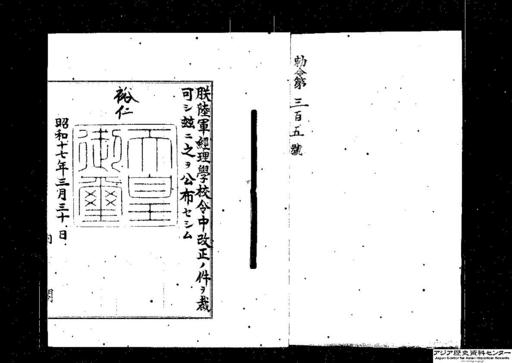 勅令第三百五號
朕陸軍經理學校令中改正ノ件ヲ裁
可シ茲ニ之ヲ公布セシム
裕仁
天皇
御璽
昭和十七年三月三十日
アジア歴史資料センター
Japan Center for Asian Historical Records